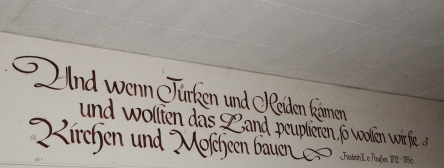 Und wenn Türken und Heiden kämen
und wollten das Land peuplieren, ſo wollen wir ſie
Kirchen und Moſcheen bauen
Friedrich II. v. Preußen 1712 - 1786